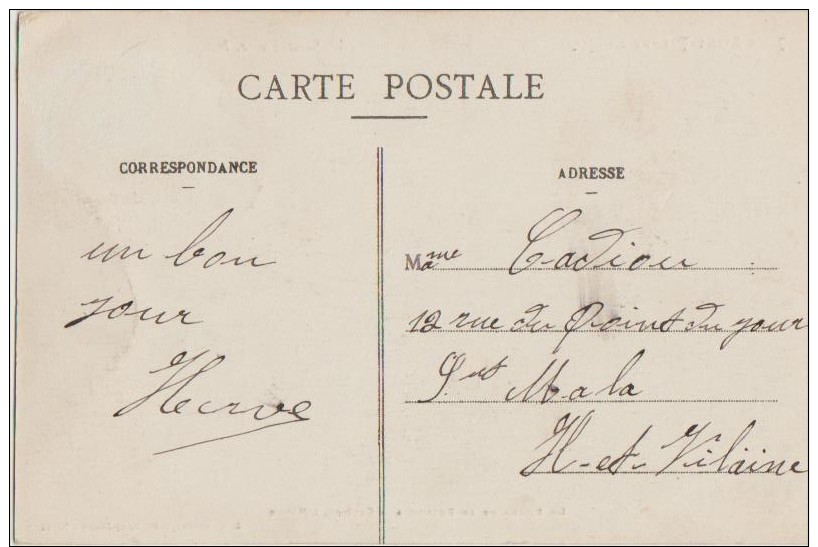 CARTE POSTALE
CORRESPONDANCE
un bon
jour
Herve
ADRESSE
Mame Cadiou
12 rue du Point du jour
St Mala
H-et-Vilaine